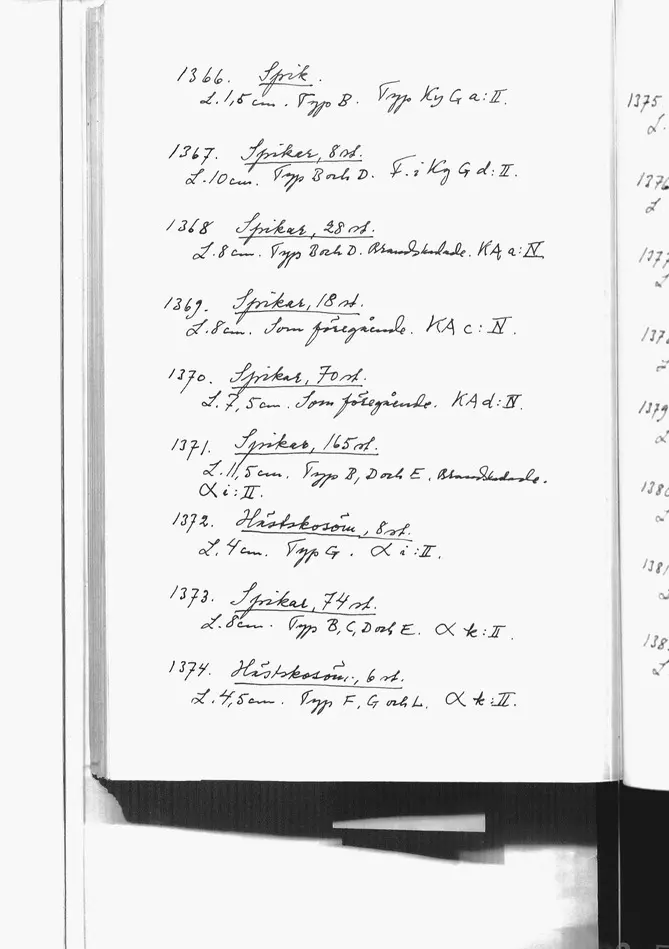 1366. Spik.
L. 1,5 cm. Typ B. Typ Ky G a:II.
1367. Spikar, 8 st.
L. 10 cm. Typ B och D. F. i Ky G d:II.
1368 Spikar, 28 st.
L. 8 cm. Typ B och D. Brandskadade. KA a:IV
1369. Spikar, 18 st.
L. 8 cm. Som föregående. KA c:IV.
1370. Spikar, 70 st.
L. 7,5 cm. Som föregående. KA d:IV.
1371. Spikar, 165 st.
L. 11,5 cm. Typ B, D och E. Brandskadade.
α i:II.
1372. Hästskosöm, 8 st.
L. 4 cm. Typ G. α i:II.
1373. Spikar, 74 st.
L. 8 cm. Typ B, C, D och E. α k:II.
1374. Hästskosöm, 6 st.
L. 4,5 cm. Typ F, G och L. α k:II.
1375
L.
1376
L
1377
L
137
L
1379
L
1380
L
1381
L
138
L